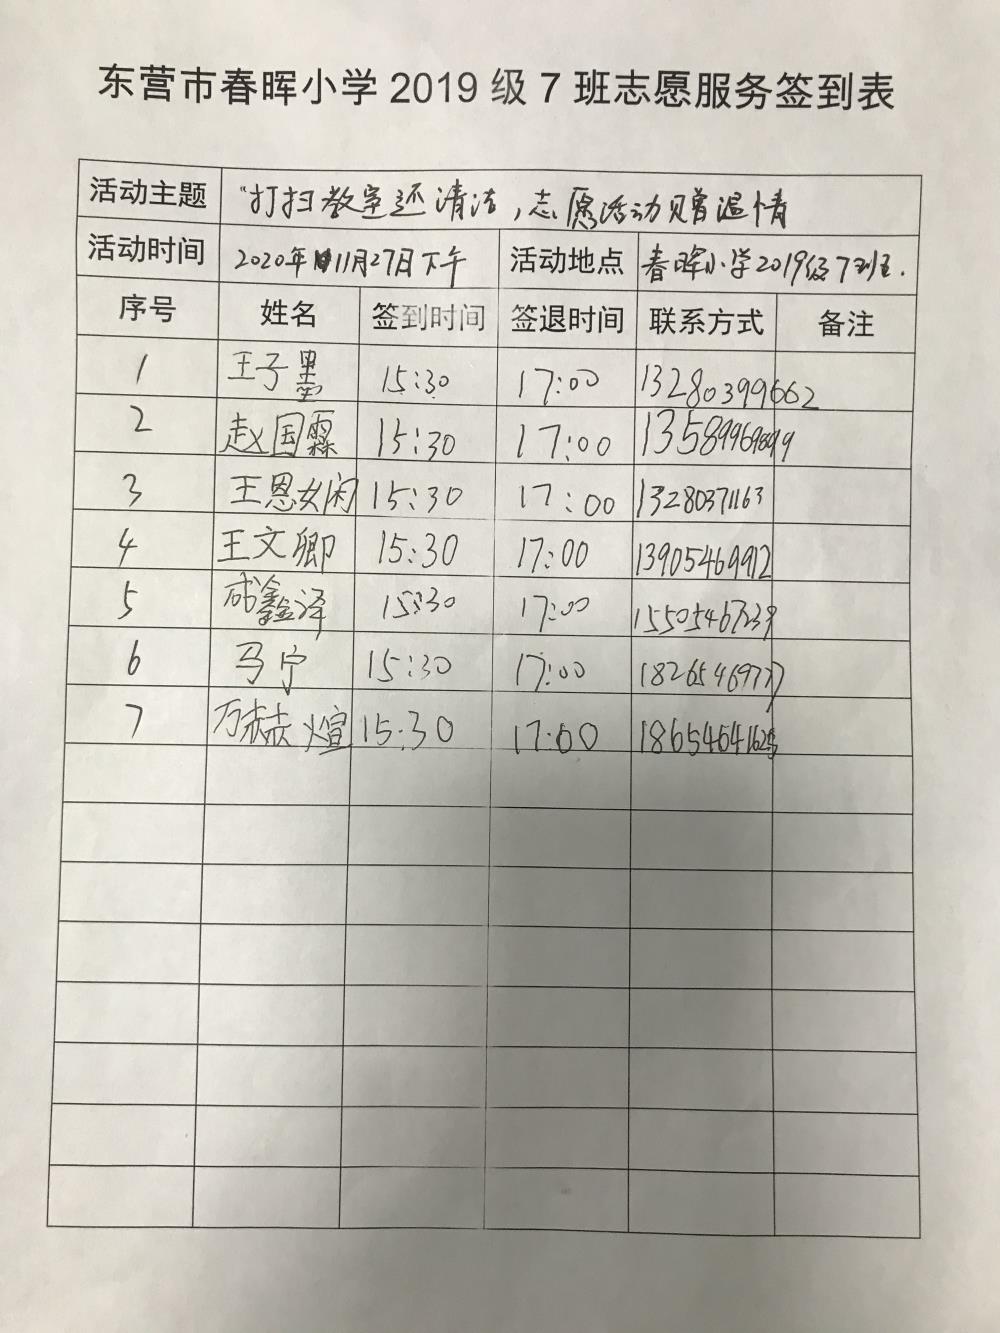 东营市春晖小学 2019 级 7 班志愿服务签到表
活动主题 “打扫教室还清洁，志愿活动赠温情
活动时间 2020年11月27日下午 活动地点 春晖小学2019级7班.
序号 姓名 签到时间 签退时间 联系方式 备注
1 王子墨 15:30 17:00 13280399662
2 赵国霖 15:30 17:00
3 王恩娴 15:30 17:00 13280371163
4 王文卿 15:30 17:00 13905469912
5 成鑫泽 15:30 17:00 15505467239
6 马宁 15:30 17:00 18265469777
7 万赫煊 15:30 17:00